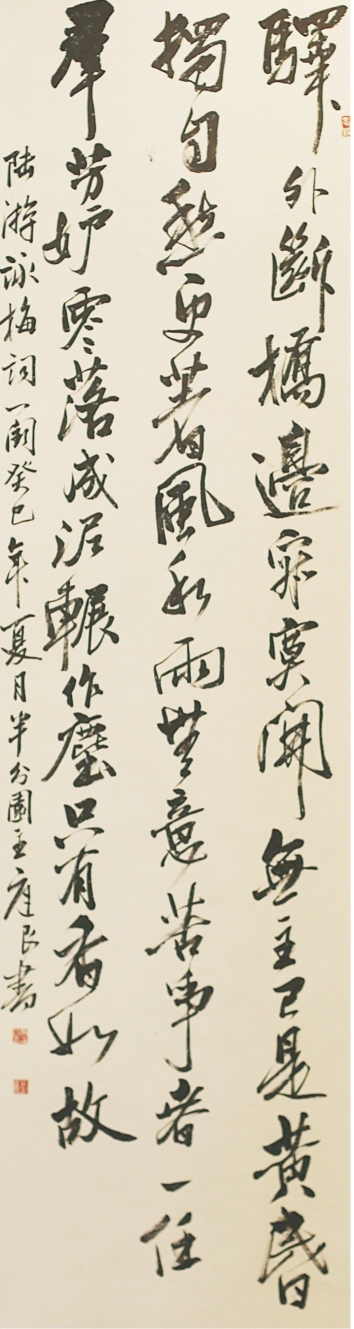 驛外斷橋邊寂寞開無主已是黃昏
獨自愁更著風和雨無意苦爭春一任
羣芳妒零落成泥輾作塵只有香如故
陸游詠梅詞一闋癸巳年夏月半分園主良書